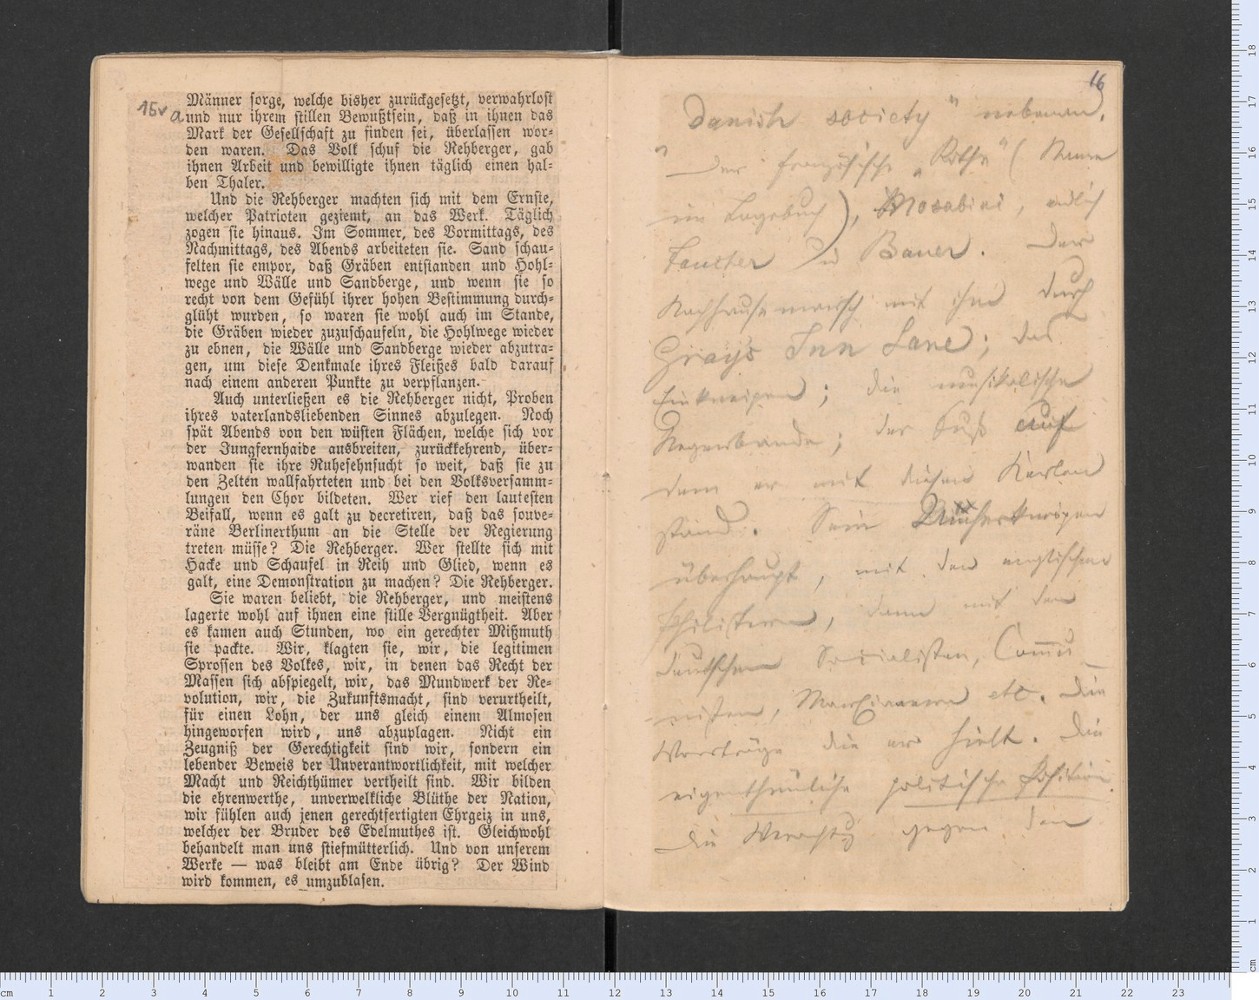 15v a
Männer sorge, welche bisher zurückgesetzt, verwahrlost
und nur ihrem stillen Bewußtsein, daß in ihnen das
Mark der Gesellschaft zu finden sei, überlassen wor-
den waren. Das Volk schuf die Rehberger, gab
ihnen Arbeit und bewilligte ihnen täglich einen hal-
ben Thaler.
Und die Rehberger machten sich mit dem Ernste,
welcher Patrioten geziemt, an das Werk. Täglich
zogen sie hinaus. Im Sommer, des Vormittags, des
Nachmittags, des Abends arbeiteten sie. Sand schau-
felten sie empor, daß Gräben entstanden und Hohl-
wege und Wälle und Sandberge, und wenn sie so
recht von dem Gefühl ihrer hohen Bestimmung durch-
glüht wurden, so waren sie wohl auch im Stande,
die Gräben wieder zuzuschaufeln, die Hohlwege wieder
zu ebnen, die Wälle und Sandberge wieder abzutra-
gen, um diese Denkmale ihres Fleißes bald darauf
nach einem anderen Punkte zu verpflanzen.
Auch unterließen es die Rehberger nicht, Proben
ihres vaterlandsliebenden Sinnes abzulegen. Noch
spät Abends von den wüsten Flächen, welche sich vor
der Jungfernhaide ausbreiten, zurückkehrend, über-
wanden sie ihre Ruhesehnsucht so weit, daß sie zu
den Zelten wallfahrteten und bei den Volksversamm-
lungen den Chor bildeten. Wer rief den lautesten
Beifall, wenn es galt zu decretiren, daß das souve-
räne Berlinerthum an die Stelle der Regierung
treten müsse? Die Rehberger. Wer stellte sich mit
Hacke und Schaufel in Reih und Glied, wenn es
galt, eine Demonstration zu machen? Die Rehberger.
Sie waren beliebt, die Rehberger, und meistens
lagerte wohl auf ihnen eine stille Vergnügtheit. Aber
es kamen auch Stunden, wo ein gerechter Mißmuth
sie packte. Wir, klagten sie, wir, die legitimen
Sprossen des Volkes, wir, in denen das Recht der
Massen sich abspiegelt, wir, das Mundwerk der Re-
volution, wir, die Zukunftsmacht, sind verurtheilt,
für einen Lohn, der uns gleich einem Almosen
hingeworfen wird, uns abzuplagen. Nicht ein
Zeugniß der Gerechtigkeit sind wir, sondern ein
lebender Beweis der Unverantwortlichkeit, mit welcher
Macht und Reichthümer vertheilt sind. Wir bilden
die ehrenwerthe, unverwelkliche Blüthe der Nation,
wir fühlen auch jenen gerechtfertigten Ehrgeiz in uns,
welcher der Bruder des Edelmuthes ist. Gleichwohl
behandelt man uns stiefmütterlich. Und von unserem
Werke — was bleibt am Ende übrig? Der Wind
wird kommen, es umzublasen.
16
Danish society" nebenan.
"Der französische Rothe" (Name
im Tagebuch), Mosabini, endlich
Faucher u Bauer. Der
Nachhausemarsch mit ihm durch
Grays Inn Lane; das
Einkneipen; die musikalische
Negerbande; der Fuß auf
dem er mit diesen Kerlen
stand. Sein Umherkneipen
überhaupt, mit den englischen
Philistern, dann mit den
deutschen Socialisten, Commu
nisten, etc. Die
Vorträge die er hielt. Die
eigenthümliche politische Position.
Die Verachtg gegen den